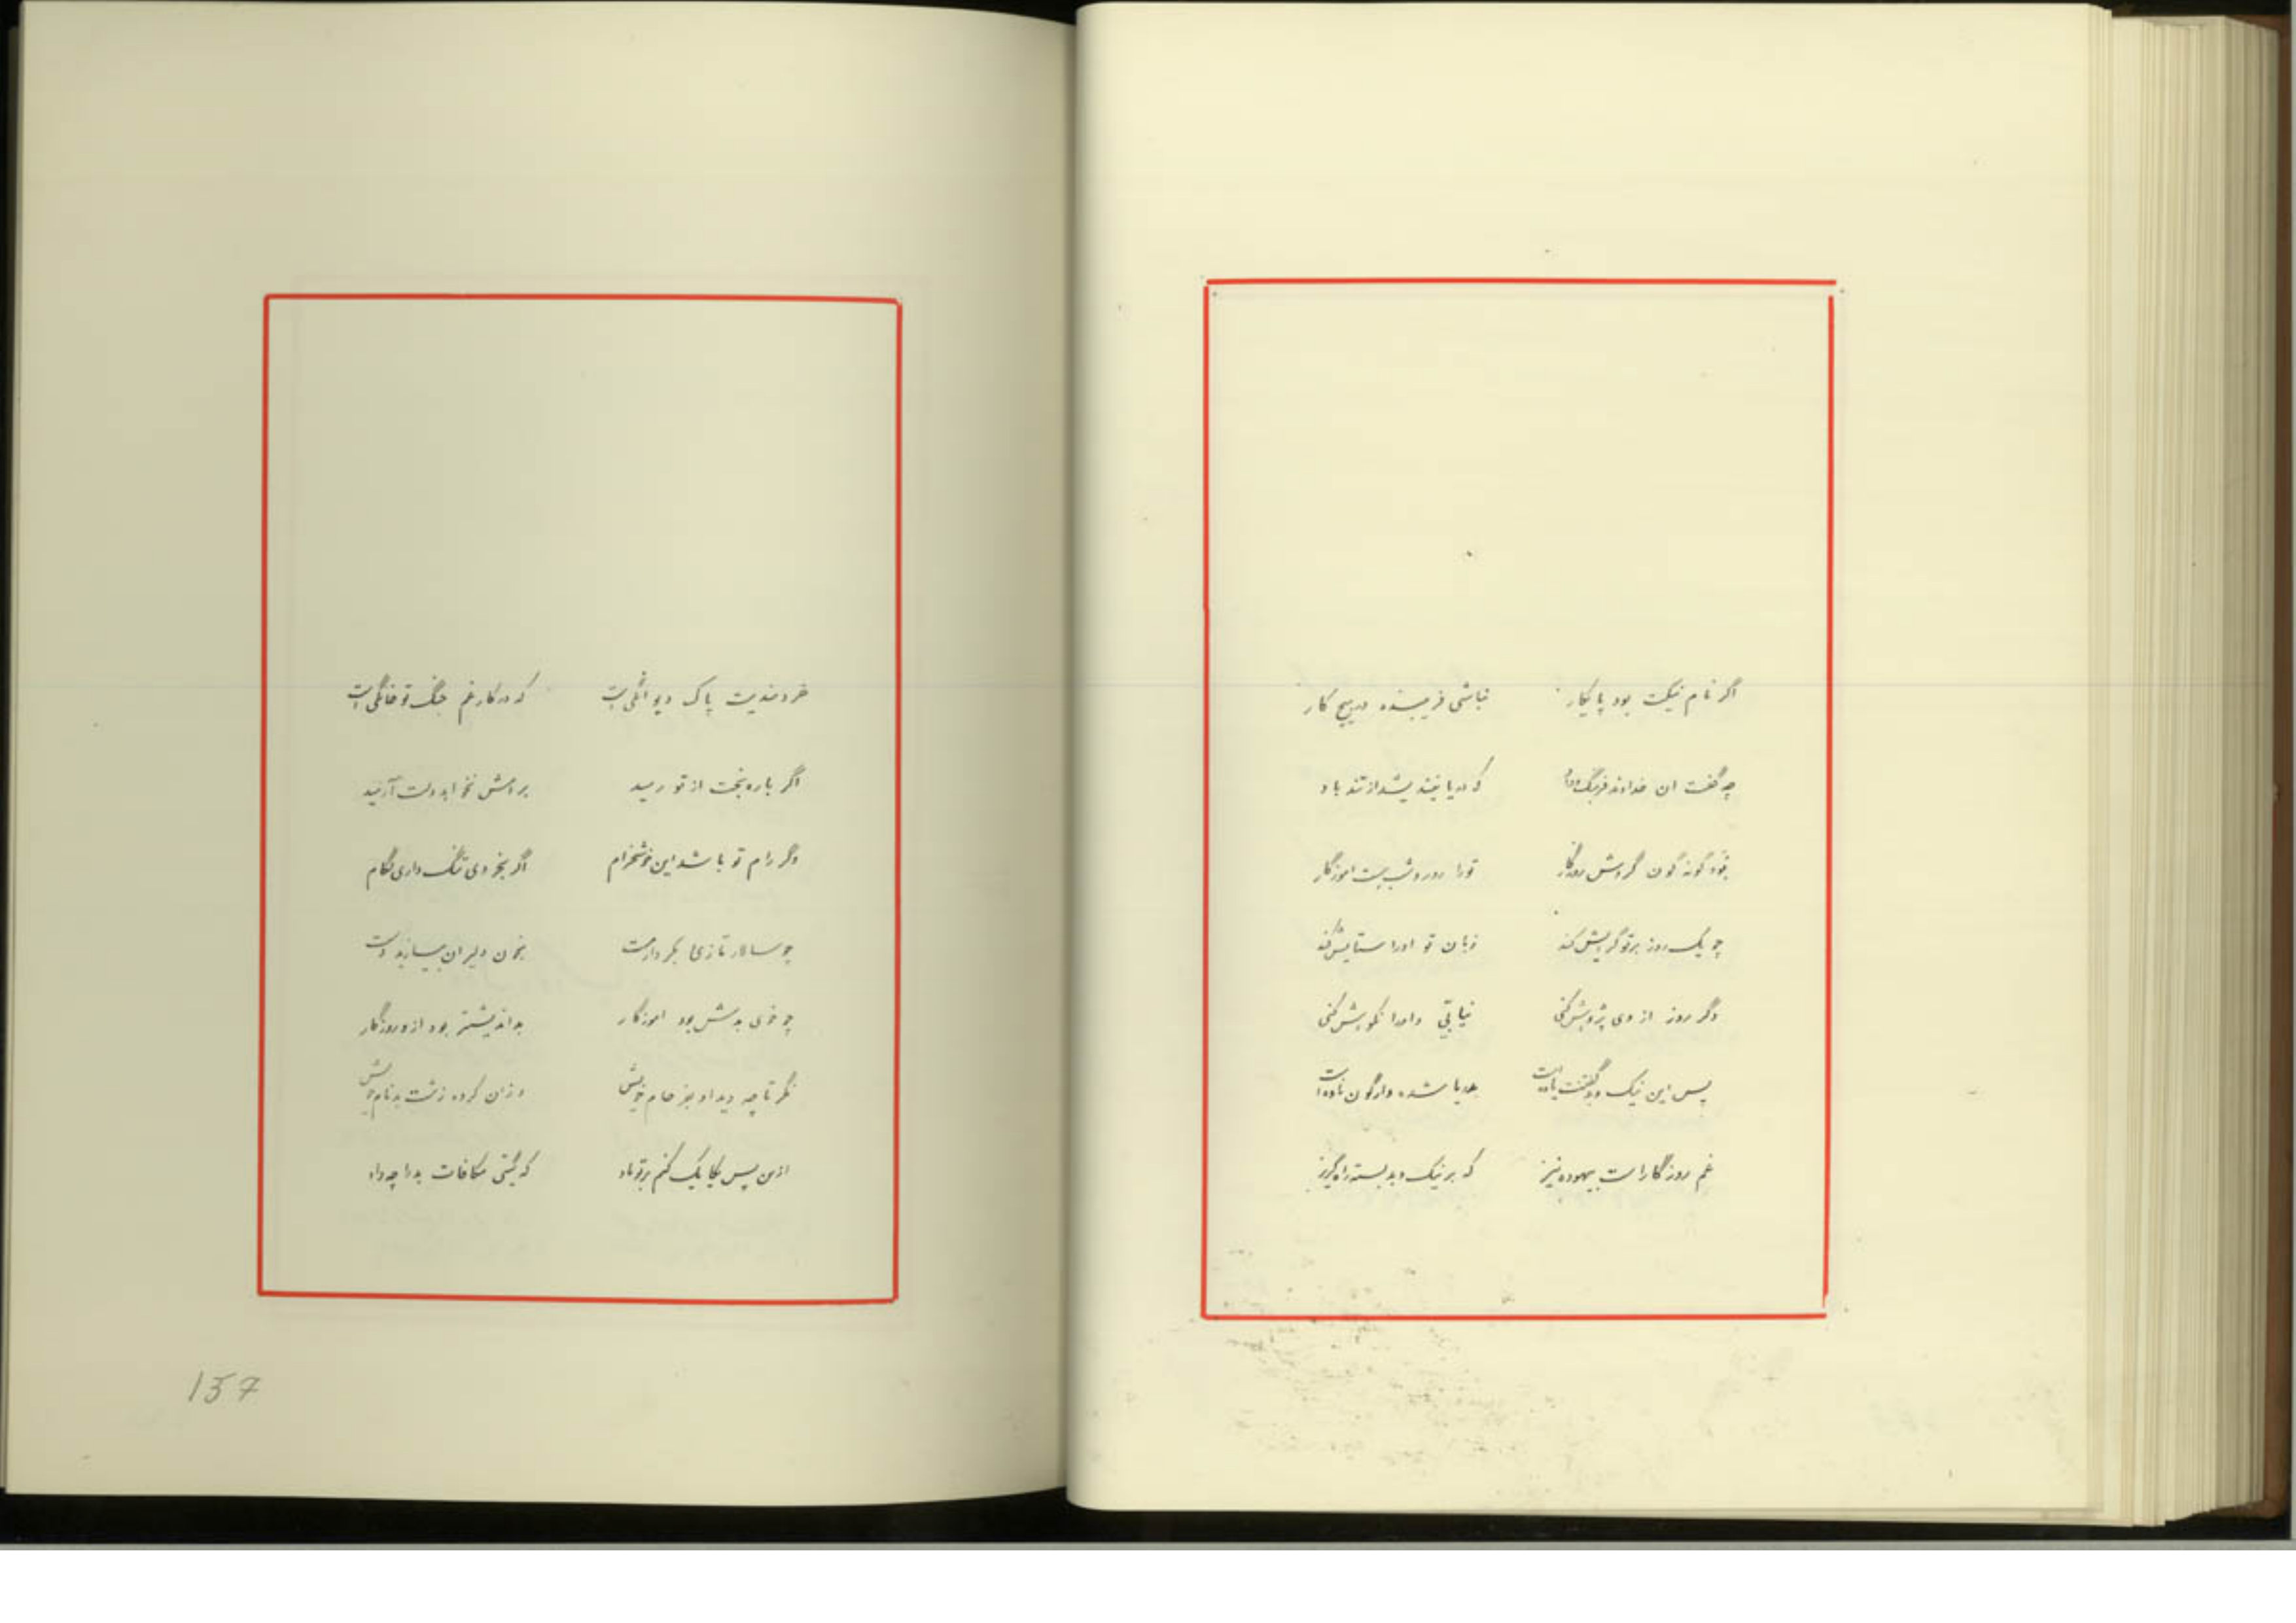 اگر نام نیکت بود پایکار نباشی فریبنده در هیچ کار
چه گفت ان خداوند فرهنگ و داد که دریا نیندیشد از تند باد
بود گونه گون گردش روزگار تورا روز و شب بست اموزگار
چو یک روز برتو گریش کند زبان تو اورا ستایش کند
دگر روز از وی پژوهش کنی نیابی و اورا نکوهش کنی
پس این نیک و بد گفتنت باد است شده وارگون
غم روزگارات بیهوده نیز که بر نیک و بد بسته راه گریز
خردمندیت پاک دیوانگی است که در کار غم جنگ تو خانگی است
اگر باره بخت از تو رمید برامش نخواهد دلت آرمید
وگر رام تو باشد این خوشخرام اگر بخردی تنگ داری لگام
چو سالار تازی بکردار مست بخون دلیران بیازید دست
چو خوی بدش بود اموزگار بد اندیشتر بود از روزگار
نگر تا چه دید او بفرجام خویش وزان کرده زشت بدنام خویش
ازین پس یکایک کنم برتو یاد که گیتی مکافات بد را چه داد
157